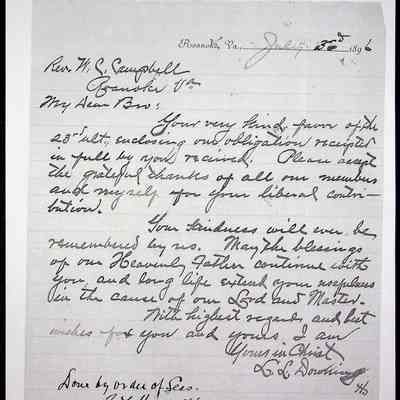 Roanoke, Va., July 2nd 1896
Rev. W. C. Campbell
Roanoke Va
My Dear Bro:
Your very kind favor of the
25" ult, enclosing our obligation receipted
in full by you received. Please accept
the grateful thanks of all our members
and myself for your liberal contri-
bution.
Your kindness will ever be
remembered by us. May the blessings
of our Heavenly Father continue with
you, and long life extend your usefulness
in the cause of our Lord and Master.
With highest regards and best
wishes for you and yours, I am
Yours in Christ
L. L. Downing
Done by order of Sess.